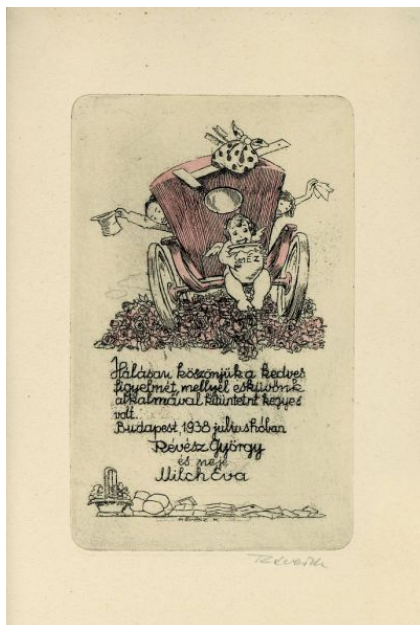 MÉZ
Hálásan köszönjük a kedves
figyelmét, mellyel esküvőnk
alkalmával kitüntetni kegyes
volt.
Budapest, 1938 júliushóban
Révész György
és neje
Milch Éva